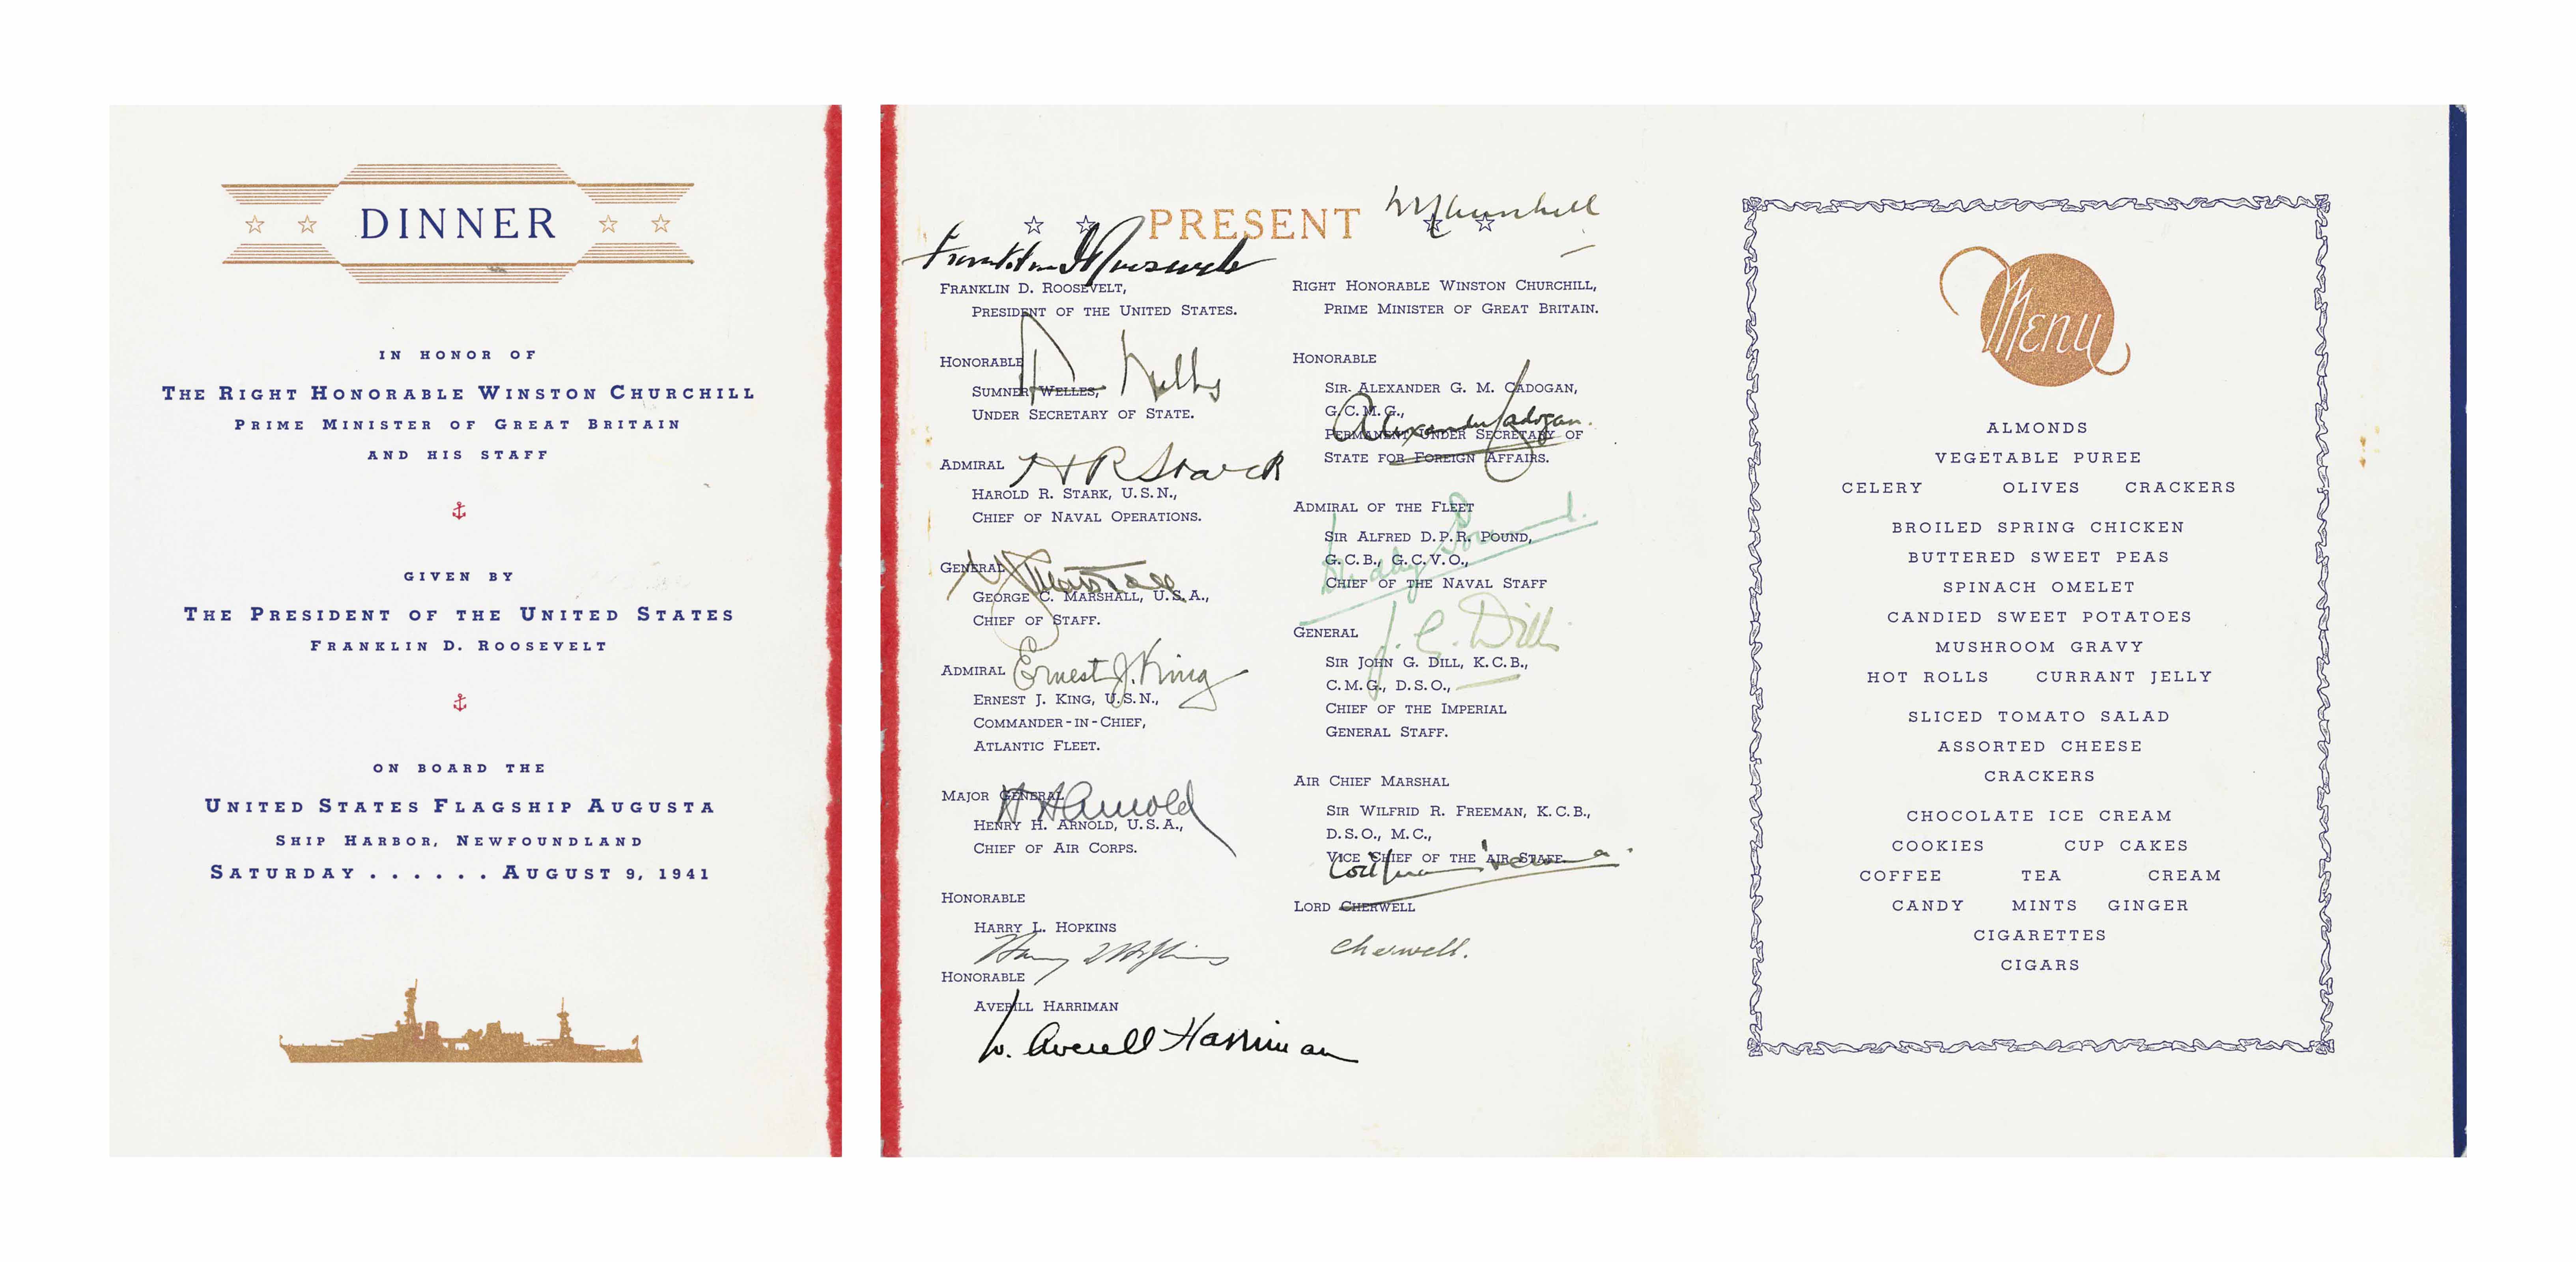 DINNER
IN HONOR OF
THE RIGHT HONORABLE WINSTON CHURCHILL
PRIME MINISTER OF GREAT BRITAIN
AND HIS STAFF
GIVEN BY
THE PRESIDENT OF THE UNITED STATES
FRANKLIN D. ROOSEVELT
ON BOARD THE
UNITED STATES FLAGSHIP AUGUSTA
SHIP HARBOR, NEWFOUNDLAND
SATURDAY . . . . . . AUGUST 9, 1941
PRESENT
Franklin D Roosevelt
FRANKLIN D. ROOSEVELT,
PRESIDENT OF THE UNITED STATES.
HONORABLE
SUMNER WELLES,
Welles
UNDER SECRETARY OF STATE.
ADMIRAL
H R Stark
HAROLD R. STARK, U.S.N.,
CHIEF OF NAVAL OPERATIONS.
GENERAL
Marshall
GEORGE C. MARSHALL, U.S.A.,
CHIEF OF STAFF.
ADMIRAL
Ernest J. King
ERNEST J. KING, U.S.N.,
COMMANDER-IN-CHIEF,
ATLANTIC FLEET.
MAJOR GENERAL
H H Arnold
HENRY H. ARNOLD, U.S.A.,
CHIEF OF AIR CORPS.
HONORABLE
HARRY L. HOPKINS
Harry L Hopkins
HONORABLE
AVERILL HARRIMAN
W. Averell Harriman
W Churchill
RIGHT HONORABLE WINSTON CHURCHILL,
PRIME MINISTER OF GREAT BRITAIN.
HONORABLE
SIR ALEXANDER G. M. CADOGAN,
G.C.M.G.,
Alexander Cadogan.
PERMANENT UNDER SECRETARY OF
STATE FOR FOREIGN AFFAIRS.
ADMIRAL OF THE FLEET
Dudley Pound.
SIR ALFRED D.P.R. POUND,
G.C.B., G.C.V.O.,
CHIEF OF THE NAVAL STAFF
GENERAL
J. G. Dill.
SIR JOHN G. DILL, K.C.B.,
C.M.G., D.S.O.,
CHIEF OF THE IMPERIAL
GENERAL STAFF.
AIR CHIEF MARSHAL
SIR WILFRID R. FREEMAN, K.C.B.,
D.S.O., M.C.,
VICE CHIEF OF THE AIR STAFF.
LORD CHERWELL
Cherwell.
Menu
ALMONDS
VEGETABLE PUREE
CELERY OLIVES CRACKERS
BROILED SPRING CHICKEN
BUTTERED SWEET PEAS
SPINACH OMELET
CANDIED SWEET POTATOES
MUSHROOM GRAVY
HOT ROLLS CURRANT JELLY
SLICED TOMATO SALAD
ASSORTED CHEESE
CRACKERS
CHOCOLATE ICE CREAM
COOKIES CUP CAKES
COFFEE TEA CREAM
CANDY MINTS GINGER
CIGARETTES
CIGARS